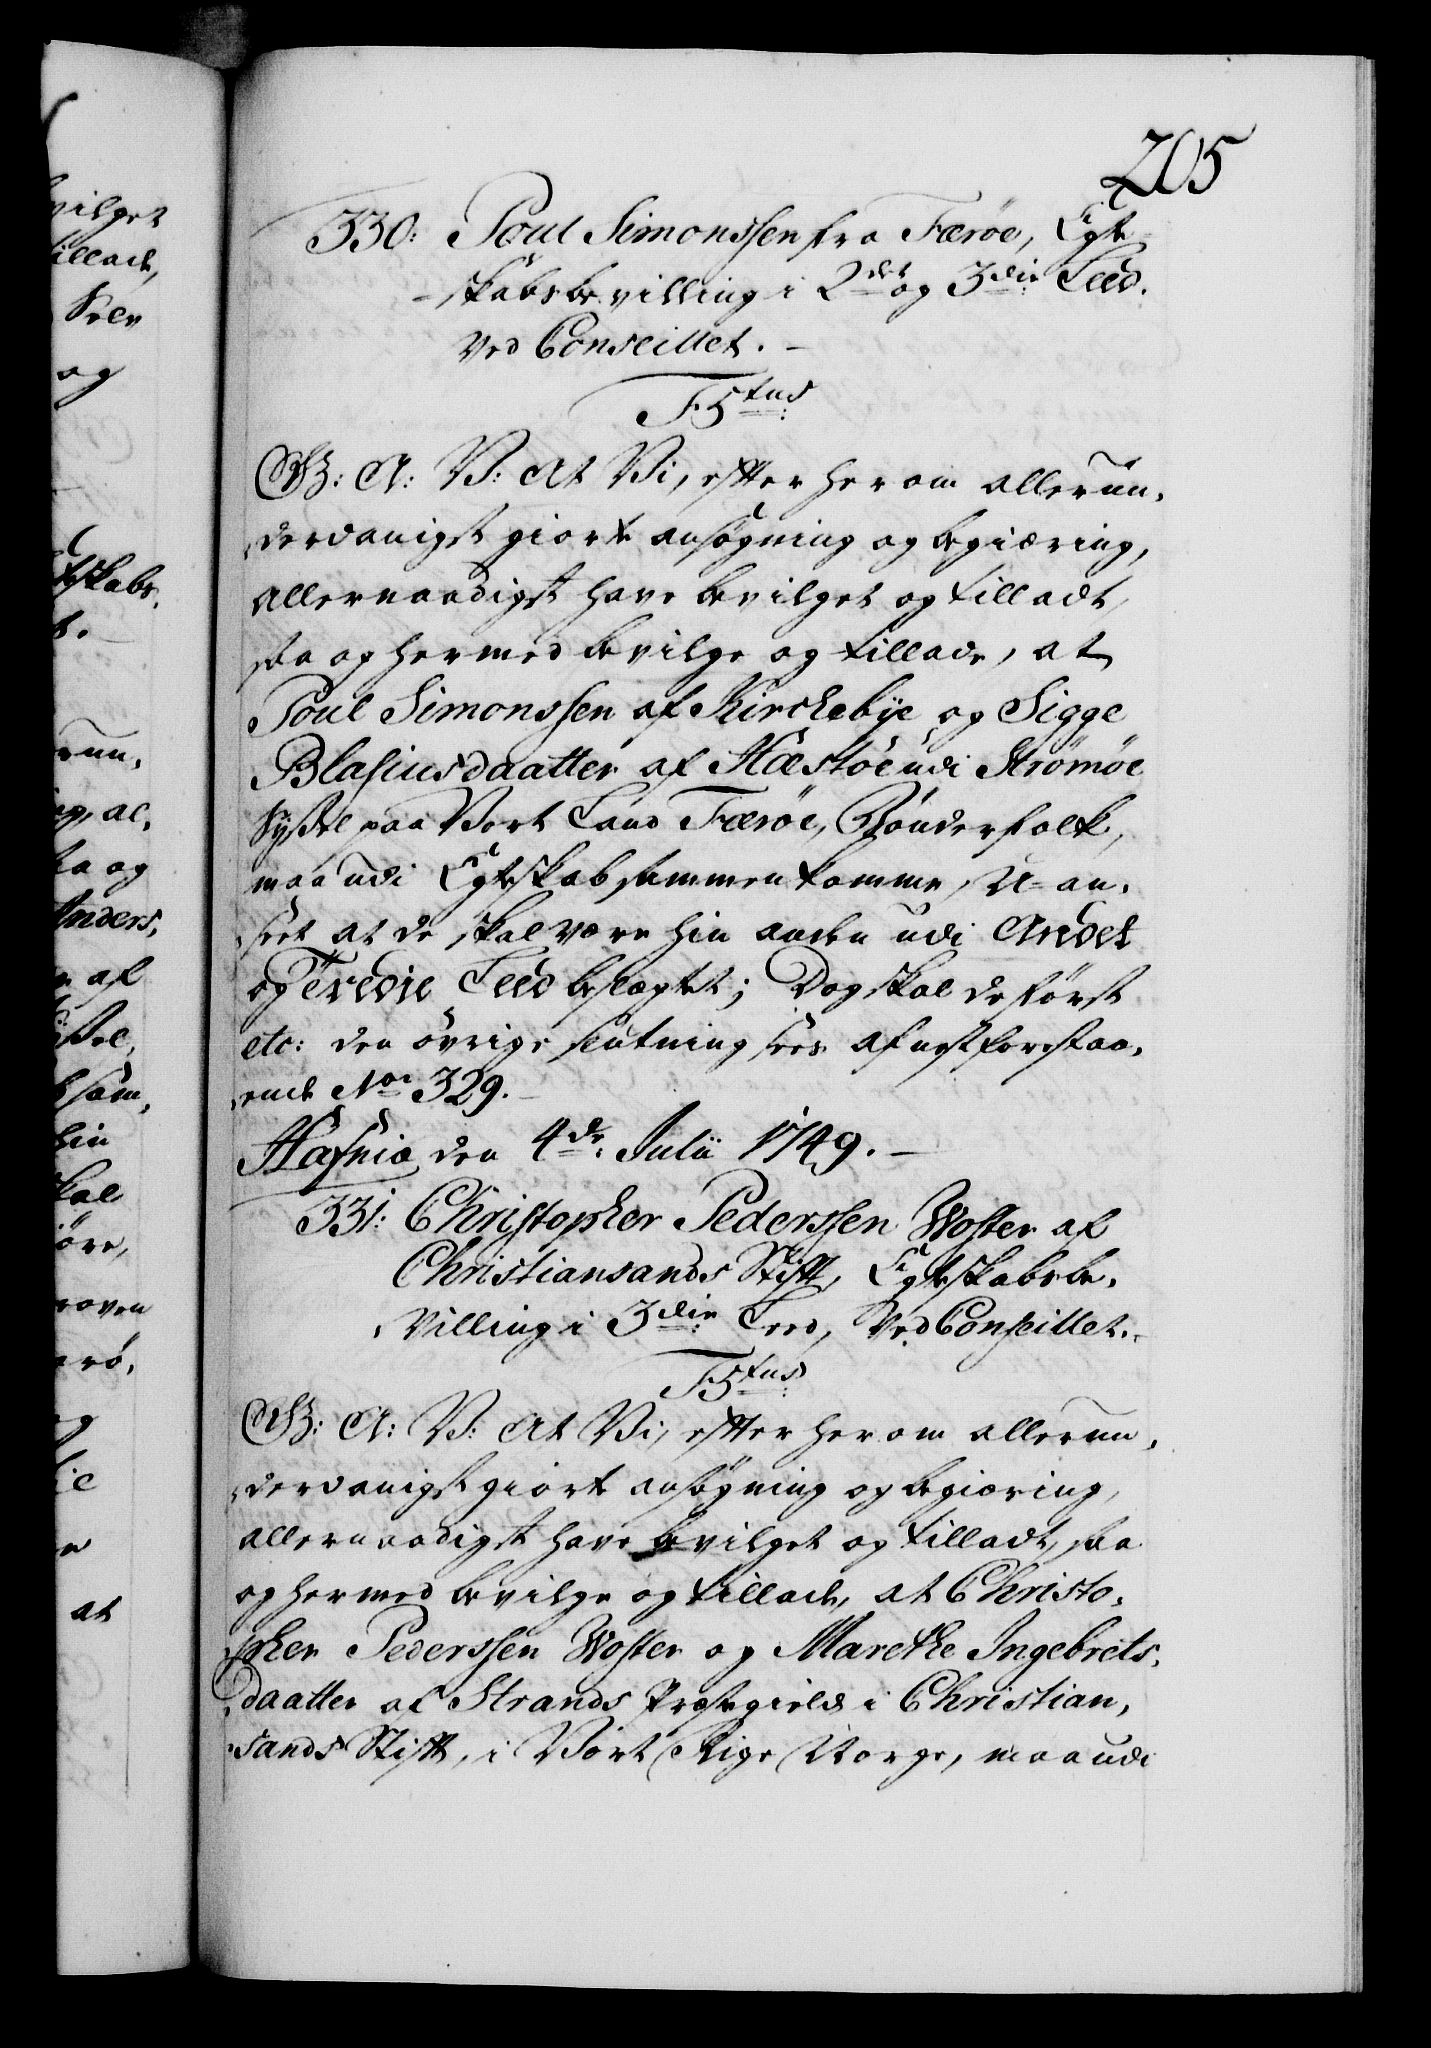 205
330: Poul Simonssen fra Færöe, Egte
skabsbevilling i 2det og 3die Leed.
Ved Conseillet.
F5tus:
G: A: V: At Vi, efter herom allerun,
dervanigst giorte ansøgning og begiæring,
allernaadigst have bevilget og tilladt,
saa og hermed bevilge og tillade, at
Poul Simonssen af Kirckebÿe og Sigge
Blasiusdaatter af Hæstöe udi Strömöe
Sÿssel paa Vort Land Færöe, Bönderfolk,
maa udi Egteskab sammenkomme, U-an,
seet at de skal være hin anden udi Andet
og Tredie Leed beslægtet; Dog skal de först
etc: den övrige slutning sees af nestforestaa,
ende No: 329.
Hafniæ den 4de: Julii 1749.
331: Christopher Pederssen Woster af
Christiansands Stift, Egteskabsbe,
villing i 3die Leed, Ved Conseillet.
F5tus:
G: A: V: At Vi, efter herom allerun,
dervanigst giorte ansøgning og begiæring,
allernaadigst have bevilget og tilladt, saa
og hermed bevilge og tillade, at Christo,
pher Pederssen Woster og Marethe Ingebrets,
daatter af Strands Præstegield i Christian,
sands Stift, i Vort Rige Norge, maa udi